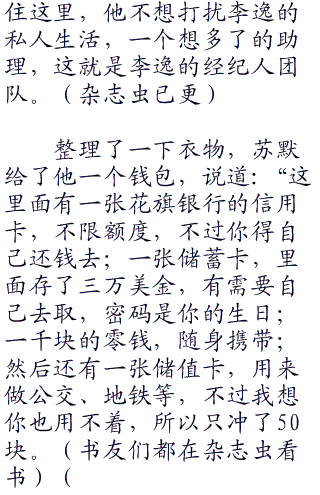 住这里，他不想打扰李逸的
私人生活，一个想多了的助
理，这就是李逸的经纪人团
队。（杂志虫已更）
整理了一下衣物，苏默
给了他一个钱包，说道：“这
里面有一张花旗银行的信用
卡，不限额度，不过你得自
己还钱去；一张储蓄卡，里
面存了三万美金，有需要自
己去取，密码是你的生日；
一千块的零钱，随身携带；
然后还有一张储值卡，用来
做公交、地铁等，不过我想
你也用不着，所以只冲了50
块。（书友们都在杂志虫看
书）（